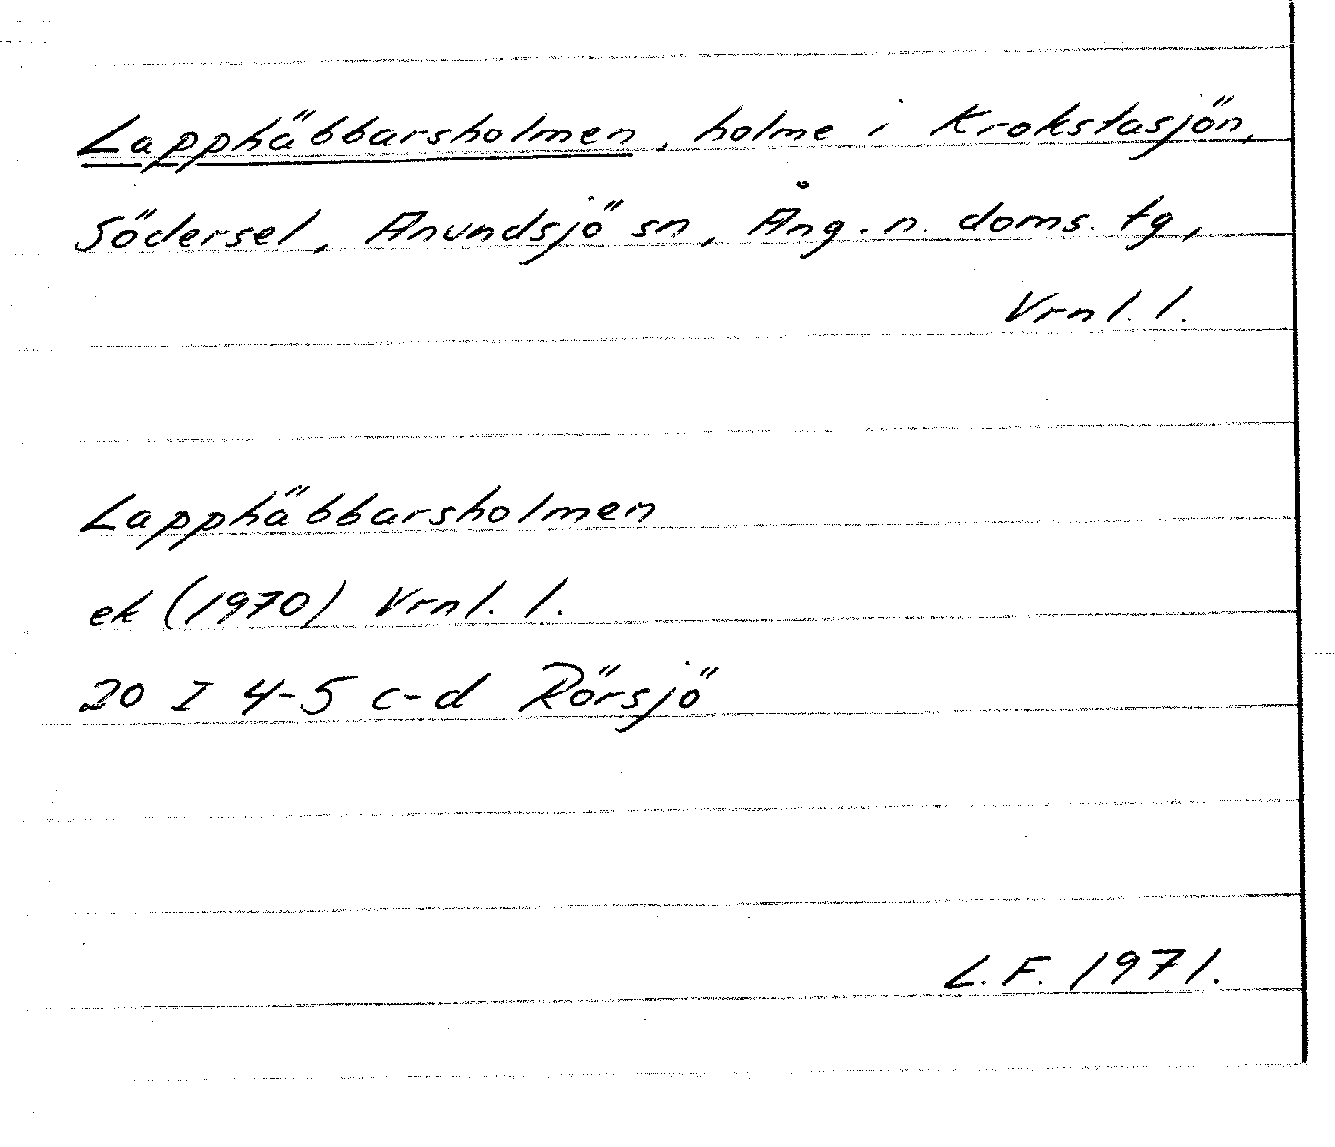 Lapphäbbarsholmen, holme i Krokstasjön,
Södersel, Anundsjö sn, Ång. n. doms. tg,
Vrnl. l.
Lapphäbbarsholmen
ek (1970) Vrnl. l.
20 I 4-5 c-d Rörsjö
L. F. 1971.